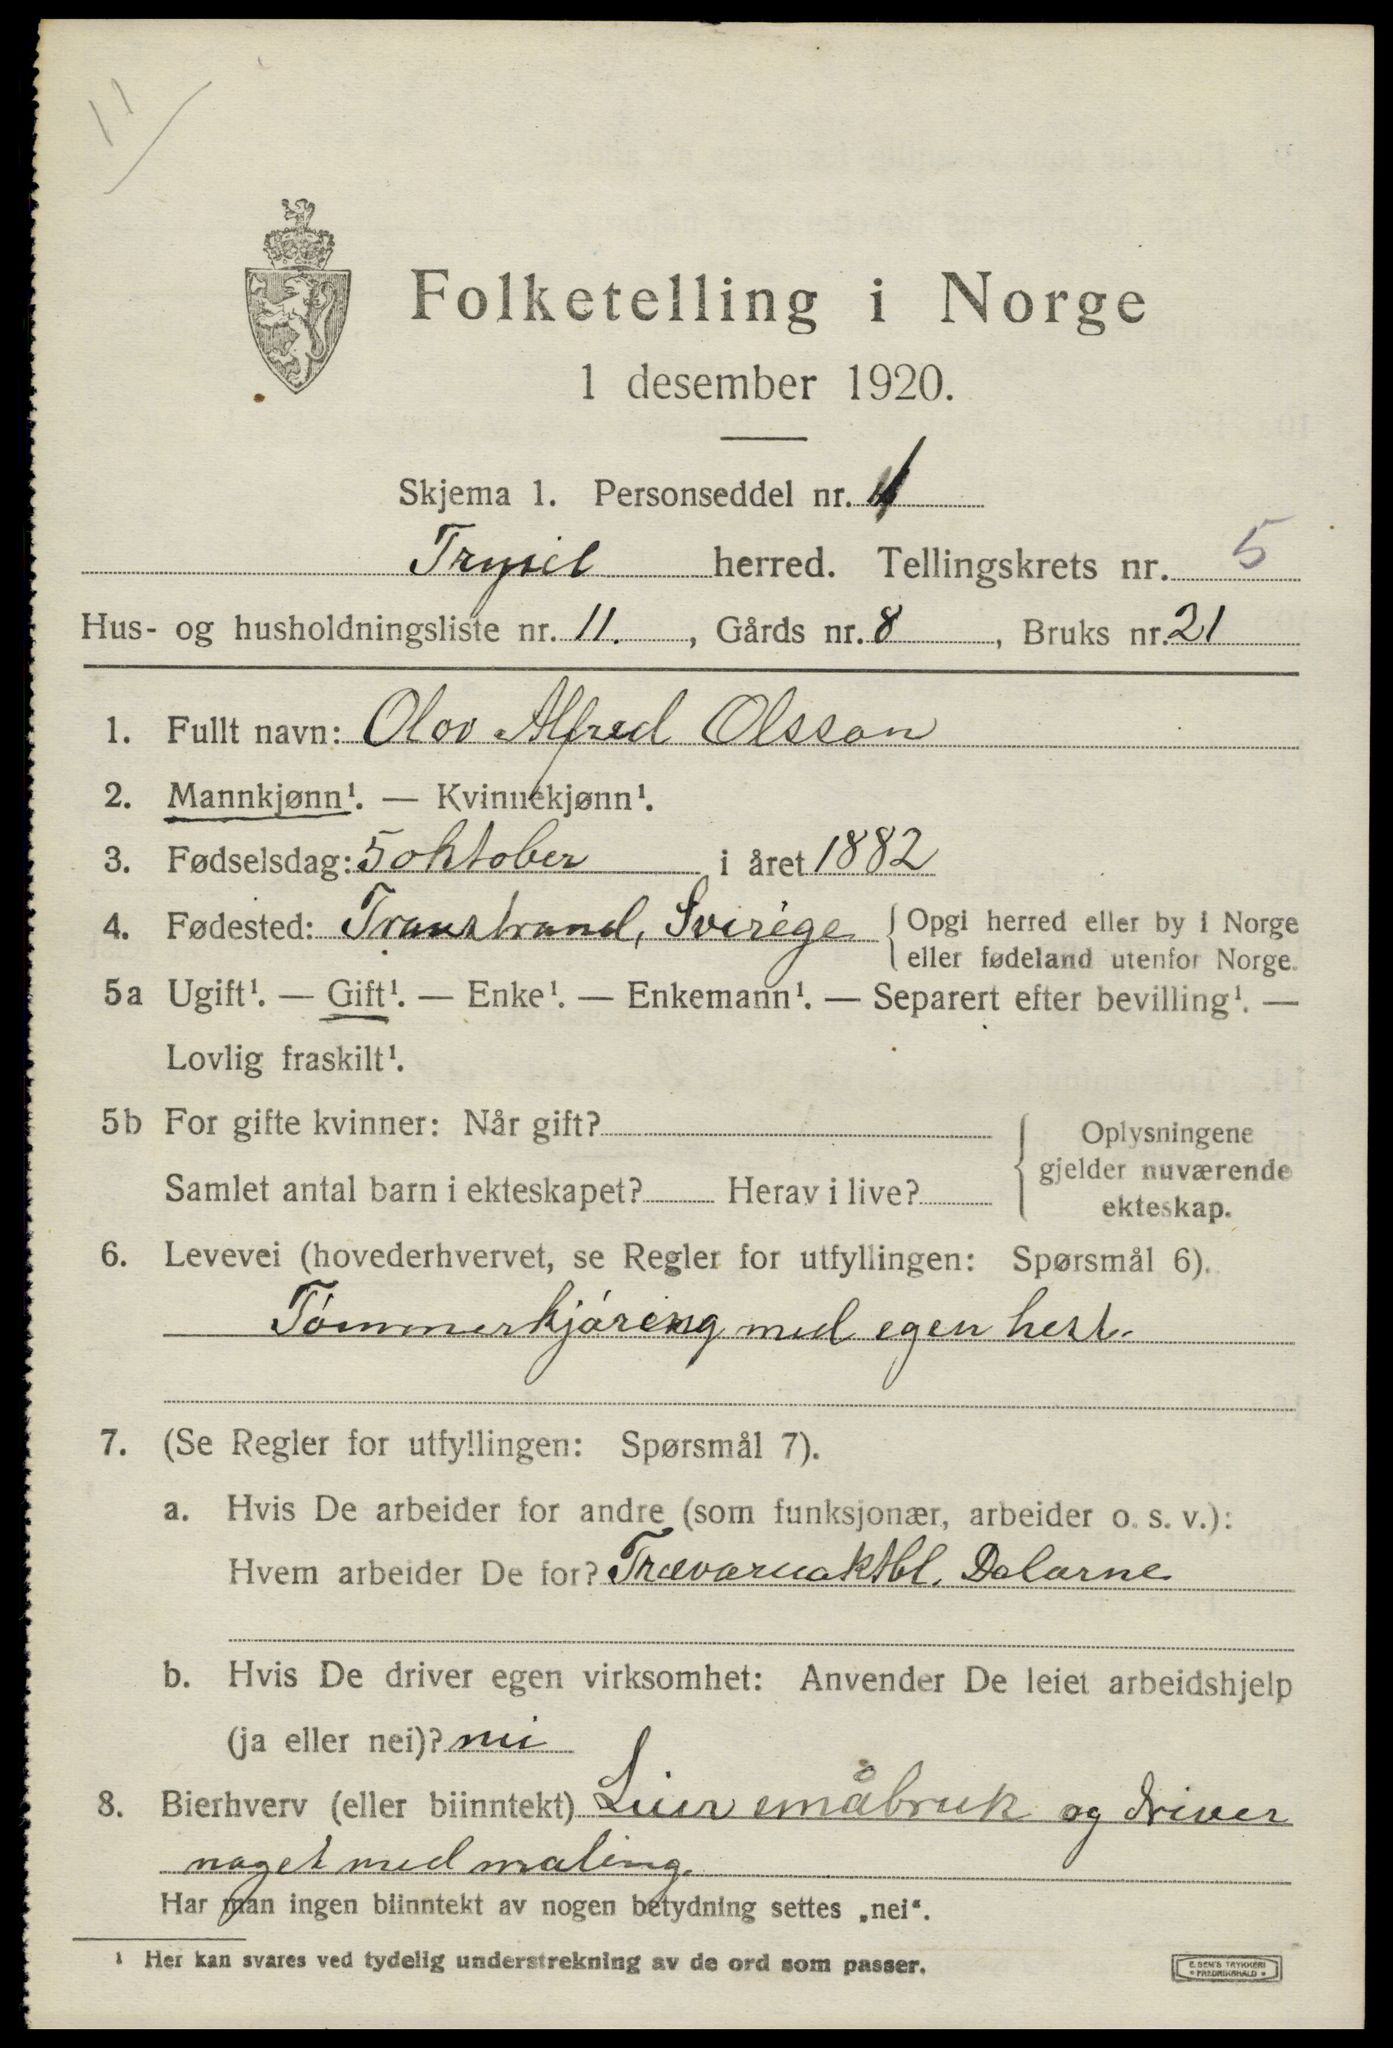 11
Folketelling i Norge
1 desember 1920.
Skjema 1. Personseddel nr. 1
Trysil herred. Tellingskrets nr. 5
Hus- og husholdningsliste nr. 11. , Gårds nr. 8 , Bruks nr. 21
1. Fullt navn: Olov Alfred Olsson
2. Mannkjønn¹. — Kvinnekjønn¹.
3. Fødselsdag: 5 oktober i året 1882
4. Fødested: Transtrand, Sverige { Opgi herred eller by i Norge
eller fødeland utenfor Norge.
5a Ugift¹. — Gift¹. — Enke¹. — Enkemann¹. — Separert efter bevilling¹. —
Lovlig fraskilt¹.
5b For gifte kvinner: Når gift?
Samlet antal barn i ekteskapet? Herav i live?
{ Oplysningene
gjelder nuværende
ekteskap.
6. Levevei (hovederhvervet, se Regler for utfyllingen: Spørsmål 6).
Tømmerkjøring med egen hest.
7. (Se Regler for utfyllingen: Spørsmål 7).
a. Hvis De arbeider for andre (som funksjonær, arbeider o. s. v.):
Hvem arbeider De for? Trævaruaktbl. Dalarne
b. Hvis De driver egen virksomhet: Anvender De leiet arbeidshjelp
(ja eller nei)? nei
8. Bierhverv (eller biinntekt) Leier småbruk og driver
noget med maling.
Har man ingen biinntekt av nogen betydning settes „nei“.
¹ Her kan svares ved tydelig understrekning av de ord som passer.
E. SEM'S TRYKKERI
• FREDRIKSHALD •